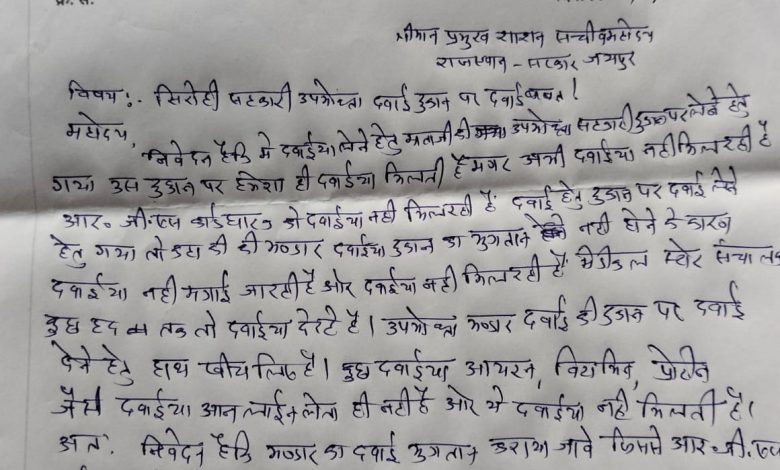 श्रीमान प्रमुख शासन सचीव महोदय
राजस्थान - सरकार जयपुर
विषय :- सिरोही सहकारी उपभोक्ता दवाई दुकान पर दवाई बाबत !
महोदय,
निवेदन हैकि मे दवाईया लेने हेतु माताजी की उपभोक्ता सहकारी दुकान पर लेने हेतु
गया उस दुकान पर हमेशा ही दवाईया मिलती है मगर अभी दवाईया नही मिल रही है
आर. जी.एच कार्डधारक को दवाईया नही मिल रही है दवाई हेतु दुकान पर दवाई लेने
हेतु गया तो कहा की की भण्डार दवाईया दुकान का भुगतान नही होने के कारण
दवाईया नही मगाई जा रही है ओर दवाईया नही मिल रही है मेडीकल स्टोर संचालक
कुछ हद तक तो दवाईया देरहे है । उपभोक्ता भण्डार दवाई की दुकान पर दवाई
देने हेतु हाथ खीच लिए है । कुछ दवाईया आयरन, विटामिन, प्रोटीन
जैसी दवाईया आन लाईन लेता ही नही है ओर ये दवाईया नही मिलती है ।
अत: निवेदन हैकि भण्डार का दवाई भुगतान कराया जावे जिससे आर. जी. एच